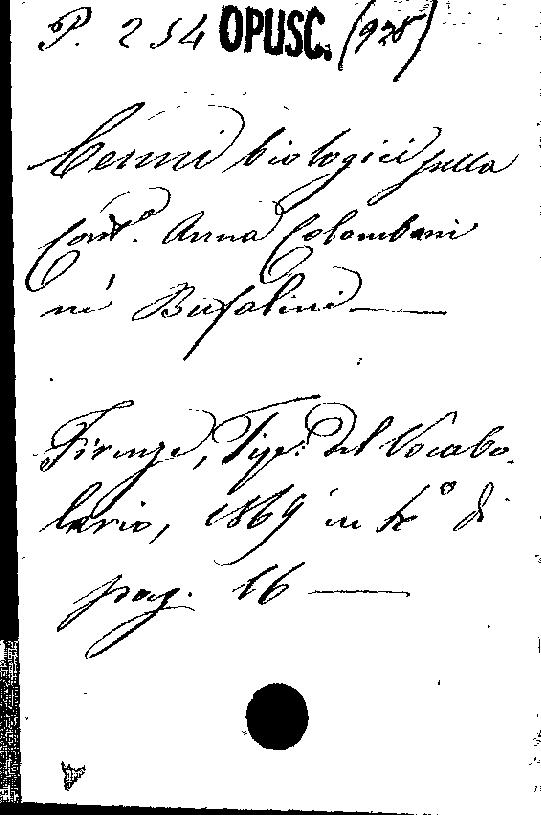 P. 254 OPUSC. (928)
Cenni biologici sulla
Cont.ª Anna Colombani
nei Bufalini —
Firenze, Tip: del Vocabo-
lario, 1869 in 4º di
pag. 16 —